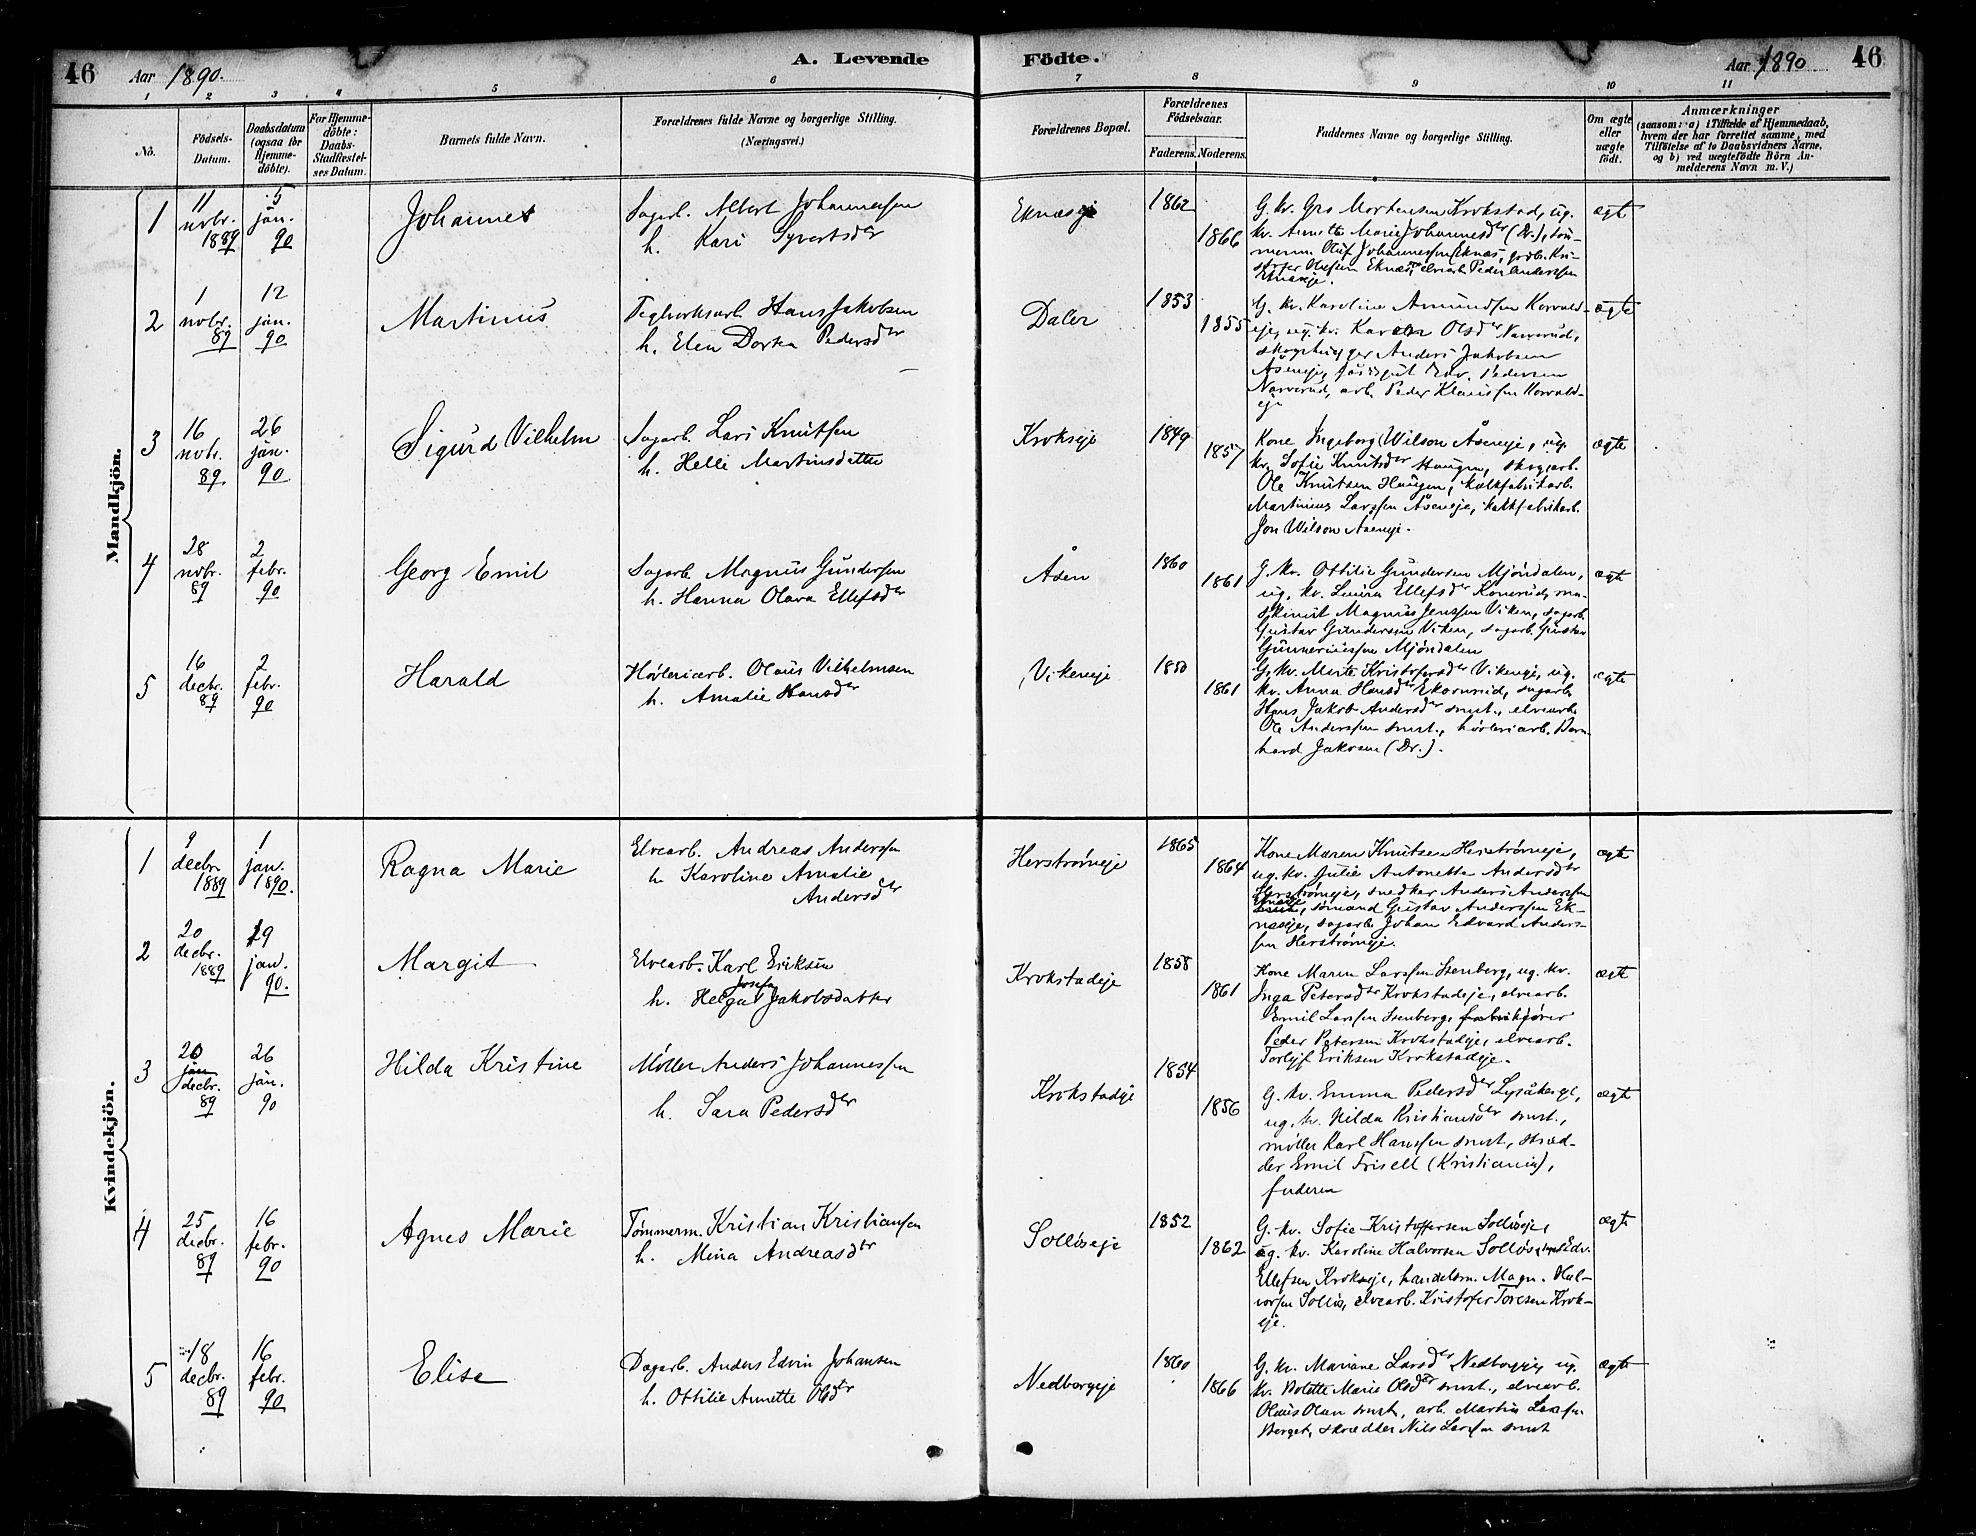 46 Aar 1890. A. Levende
Födte. Aar 1890 46
1 2 3 4 5 6 7 8 9 10 11
No.
Födsels-
Datum.
Daabsdatum
(ogsaa for
Hjemme-
döbte).
For Hjemme-
döbte:
Daabs-
Stadfæstel-
ses Datum.
Barnets fulde Navn.
Forældrenes fulde Navne og borgerlige Stilling.
(Næringsvei.)
Forældrenes Bopæl.
Forældrenes
Födselsaar.
Faderens. Moderens.
Faddernes Navne og borgerlige Stilling.
Om ægte
eller
uægte
födt.
Anmærkninger
(saasom: a) i Tilfælde af Hjemmedaab,
hvem der har forrettet samme, med
Tilföielse af to Daabsvidners Navne,
og b) ved uægtefödte Börn An-
melderens Navn m. V.)
Mandkjön.
1
11
novbr.
1889
5
jan.
90
Johannes
Sagarb. Albert Johannessen
h. Kari Syvertsdtr
Eknæseje
1862
1866
G. kv. Gro Mortensen Krokstad, ug.
kv. Annette Marie Johannesdtr (Dr.), tøm-
merm. Oluf Johannessen Eknæs, grdb. Kri-
stofer Olefsen Eknæs, elvearb. Peder Anderssen
Eknæseje.
ægt
2
1
novbr.
89
12
jan.
90
Martinius
Teglverksarb. Hans Jakobsen
h. Elen Dortea Pedersdtr
Daler
1853
1855
G. kv. Karoline Amundsen Korvald-
eje, ug. kv. Karen Olsdtr Narverud,
skoghugger Anders Jakobsen
Åseneje, Edv. Pedersen
Narverud, arb. Peder Klaussen Korvald-
eje
ægte
3
16
nov.
89
26
jan.
90
Sigurd Vilhelm
Sagarb. Lars Knutsen
h. Helle Martinsdatter
Krokseje
1849
1857
Kone Ingeborg Wilson Åseneje, ug.
kv. Sofie Knutsdtr Haugen, skogarb.
Ole Knutsen Haugen, kalkfabrikarb.
Martinius Larssen Åseneje, kalkfabrikarb.
Jon Wilson Åseneje.
ægte
4
28
novbr.
89
2
febr.
90
Georg Emil
Sagarb. Magnus Gundersen
h. Hanna Olava Ellefsdtr
Åsen
1860
1861
G. kv. Ottilie Gundersen Mjöndalen,
ug. kv. Laura Ellefsdtr Konerud, ma-
skinist Magnus Jenssen Viken, sagarb.
Gustav Gundersen Viken, sagarb. Gustav
Gunneriussen Mjöndalen
ægte
5
16
decbr.
89
2
febr.
90
Harald
Høvleriarb. Olaus Vilhelmsen
h. Amalie Hansdtr
Vikeneje
1850
1861
G. kv. Marte Kristofersdtr Vikeneje, ug.
kv. Anna Hansdtr Ekornrud, sagarb.
Hans Jakob Andersdtr smst., elvearb.
Ole Anderssen smst., høvleriarb. Bern-
hard Jakobsen (Dr.).
ægte
Kvindekjön.
1
9
decbr.
1889
1
jan.
1890.
Ragna Marie
Elvearb. Andreas Anderssen
h. Karoline Amalie
Andersdtr
Herstrømeje
1865
1864
Kone Maren Knutsen Herstrømeje,
ug. kv. Julie Antonette Andersdtr
Herstrømeje, snedker Anders Anderssen
smst., sømand Gustav Anderssen Ek-
næseje, sagarb. Johan Edvard Anders-
sen Herstrømeje.
ægte
2
20
decbr.
1889
19
jan.
90.
Margit
Elvearb. Karl Eriksen
h. Helga Josefa Jakobsdatter
Krokstadeje
1858
1861
Kone Maren Larssen Stenberg, ug. kv.
Inga Petersdtr Krokstadeje, elvearb.
Emil Larssen Stenberg, fabrikkjører
Peder Petersen Krokstadeje, elvearb.
Torleif Eriksen Krokstadeje.
ægt
3
20
jan
decbr.
89
26
jan.
90
Hilda Kristine
Møller Anders Johannessen
h. Sara Pedersdtr
Krokstadeje
1854
1856
G. kv. Emma Pedersdtr Lysakereje,
ug. kv. Hilda Kristiansdtr smst.,
møller Karl Hanssen smst., skræd-
der Emil Frisell (Kristiania),
faderen
ægt
4
25
decbr.
89
16
febr.
90
Agnes Marie
Tømmerm. Kristian Kristiansen
h. Mina Andreasdtr
Solløseje
1852
1862
G. kv. Sofie Kristoffersen Solløseje,
ug. kv. Karoline Halvorsen Solløs, Edv.
Ellefsen Krokseje, handelsm. Magn. Hal-
vorsen Solløs, elvearb. Kristofer Toresen Krok-
eje.
ægt
5
18
decbr.
89
16
febr.
90
Elise
Dagarb. Anders Edvin Johansen
h. Ottilie Annette Olsdtr
Nedborgeje
1860
1866
G. kv. Mariane Larsdtr Nedborgeje, ug.
kv. Bolette Marie Olsdtr smst., elvearb.
Olaus Olsen smst., arb. Martin Larssen
Berget, skrædder Nils Larssen smst
ægte